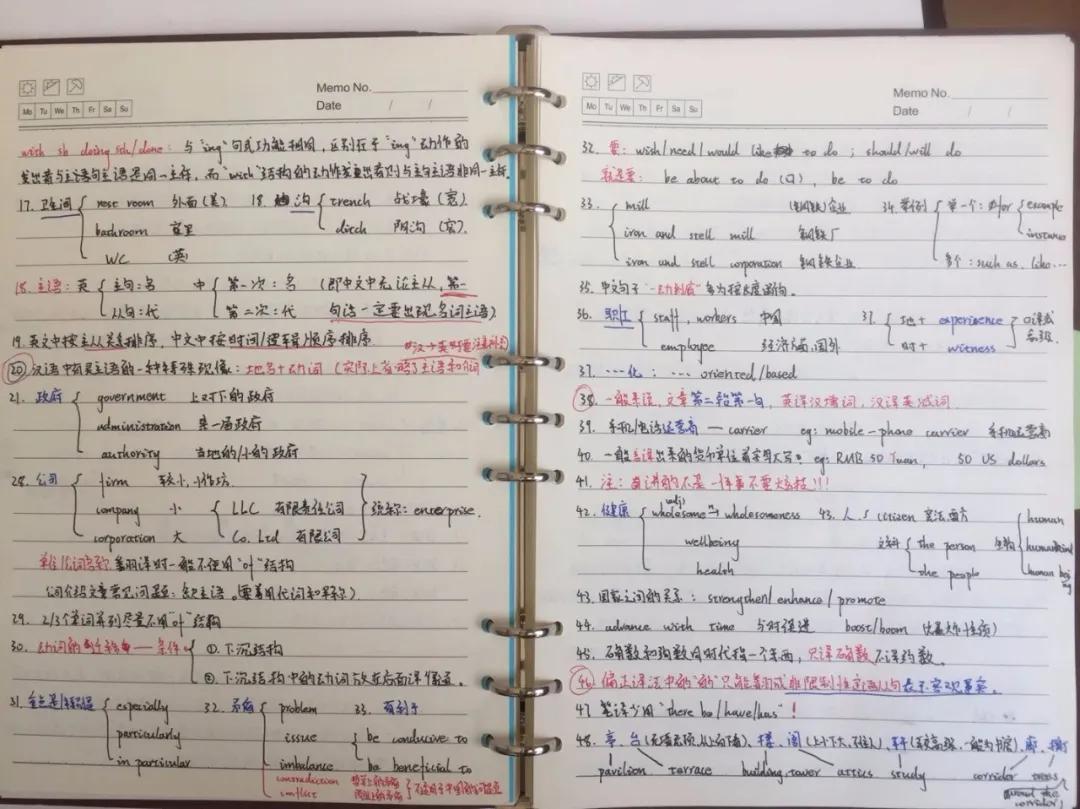 Memo No.
Date / /
Mo Tu We Th Fr Sa Su
with sb doing sth/done: 与"ing"句式功能相同，区别在于"ing"动作的
发出者与主语句主语是同一主体，而"with"结构的动作发出者则与主句主语非同一主体。
17. 卫生间 rest room 外面(美) 18. 沟 trench 战壕(宽)
bathroom 家里 ditch 阴沟(窄).
WC (英)
18. 主语: 英 主句: 名 中 第一次: 名 (即中文中无论主从,第一
从句: 代 第二次: 代 句话一定要出现名词主语)
19. 英文中按主从关系排序,中文中按时间/逻辑顺序排序
20 汉语中有无主语的一种特殊现象: 地名+动词 (实际上省略了主语和介词
21. 政府 government 上对下的政府
administration 某一届政府
authority 当地的/小的政府
28. 公司 firm 较小,小作坊.
company 小 LLC 有限责任公司 统称: enterprise.
corporation 大 Co. Ltd 有限公司
翻译时一般不使用"of"结构
公司介绍文章常见问题: 缺主语。(要善用代词和简称)
29. 2/3个单词并列尽量不用"of"结构
30. 动词的 —— 条件 ①. 下沉结构
②. 下沉结构中的动词放在后面译
31. especially 32. 矛盾 problem 33. 有利于
particularly issue be conducive to
in particular imbalance be beneficial to
contradiction
conflict
Memo No.
Date / /
Mo Tu We Th Fr Sa Su
32. 要: wish/need/would like to do ; should/will do
就是要: be about to do (口), be to do
33. mill (钢铁)企业 34. 举例 单一个: for example
iron and stell mill 钢铁厂 instance
iron and stell corporation 钢铁企业 多个: such as, like...
35. 中文句子
36. 职工 staff, workers 中国 37. 地+ experience
employee 经济方面,国外 时+ witness
37. ……化: … oriented/based
38. 一般来说,文章第二段第一句,英译汉增词,汉译英减词
39. 手机/电话运营商 — carrier eg: mobile-phone carrier 手机运营商
40. 一般音译出来的货币单位首字母大写。eg: RMB 50 Yuan, 50 US dollars
41. 注: 一件事不要炫技!!!
42. 健康 wholesome (adj) → wholesomeness 43. 人 citizen 宪法,西方
wellbeing the person 生物 human
health the people humankind
human being
43. 国家之间的关系: strengthen/enhance/promote
44. advance with time 与时俱进 boost/boom
45. 确数和约数同时代指一个东西,只译确数不译约数。
46 偏正译法中的"的"只能翻成非限制性定语从句表示客观事实.
47 笔译少用"there be/have/has"!
48. 亭、台、楼、阁(上小下大,可住人)、轩 廊
pavilion terrace building tower attics study corridor
around the
corridor)